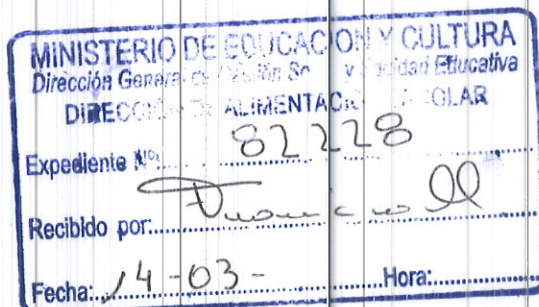 MINISTERIO DE EDUCACION Y CULTURA
Dirección Educativa
DIRECCION DE ALIMENTACION ESCOLAR
Expediente Nº: 82228
Recibido por:
Fecha: 14-03- Hora: